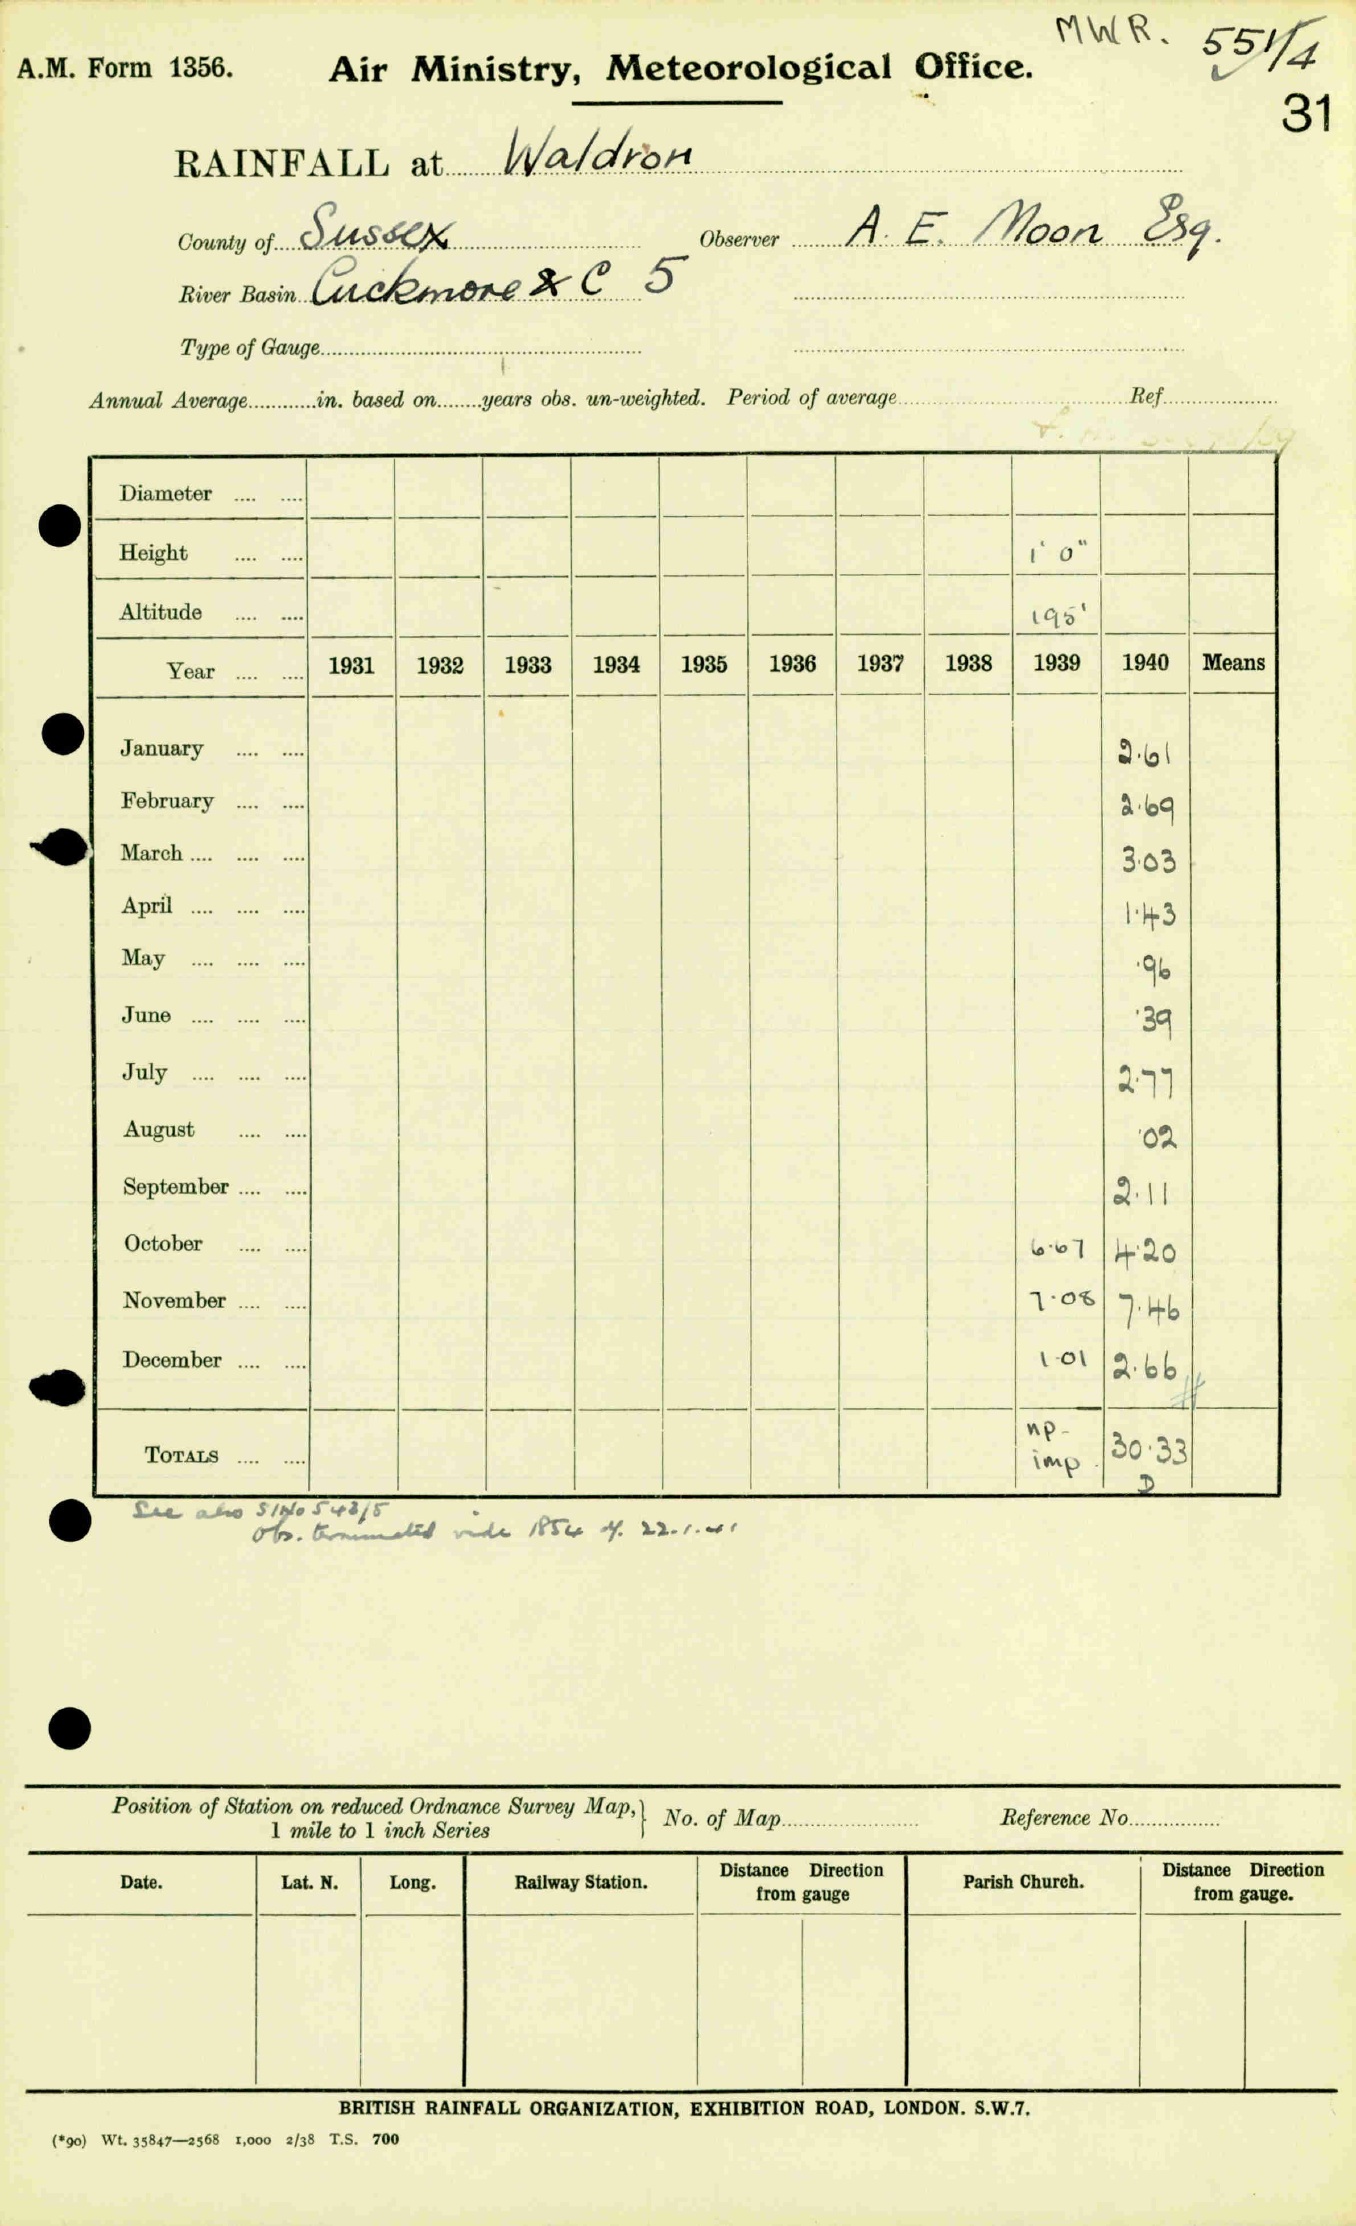 MWR. 551/4
A.M. Form 1356. Air Ministry, Meteorological Office.
31
RAINFALL at Waldron
County of Sussex Observer A. E. Moon Esq.
River Basin Cuckmere & C 5
Type of Gauge
Annual Average in. based on years obs. un-weighted. Period of average Ref
Diameter
Height 1' 0"
Altitude 195'
Year 1931 1932 1933 1934 1935 1936 1937 1938 1939 1940 Means
January 2.61
February 2.69
March 3.03
April 1.43
May .96
June .39
July 2.77
August .02
September 2.11
October 6.67 4.20
November 7.08 7.46
December 1.01 2.66
TOTALS np- imp. 30.33
D
See also S/No 543/5
Obs. terminated vide 1854 of 22.1.41
Position of Station on reduced Ordnance Survey Map, 1 mile to 1 inch Series } No. of Map Reference No
Date. Lat. N. Long. Railway Station. Distance Direction from gauge Parish Church. Distance Direction from gauge.
BRITISH RAINFALL ORGANIZATION, EXHIBITION ROAD, LONDON. S.W.7.
(*90) Wt. 35847—2568 1,000 2/38 T.S. 700